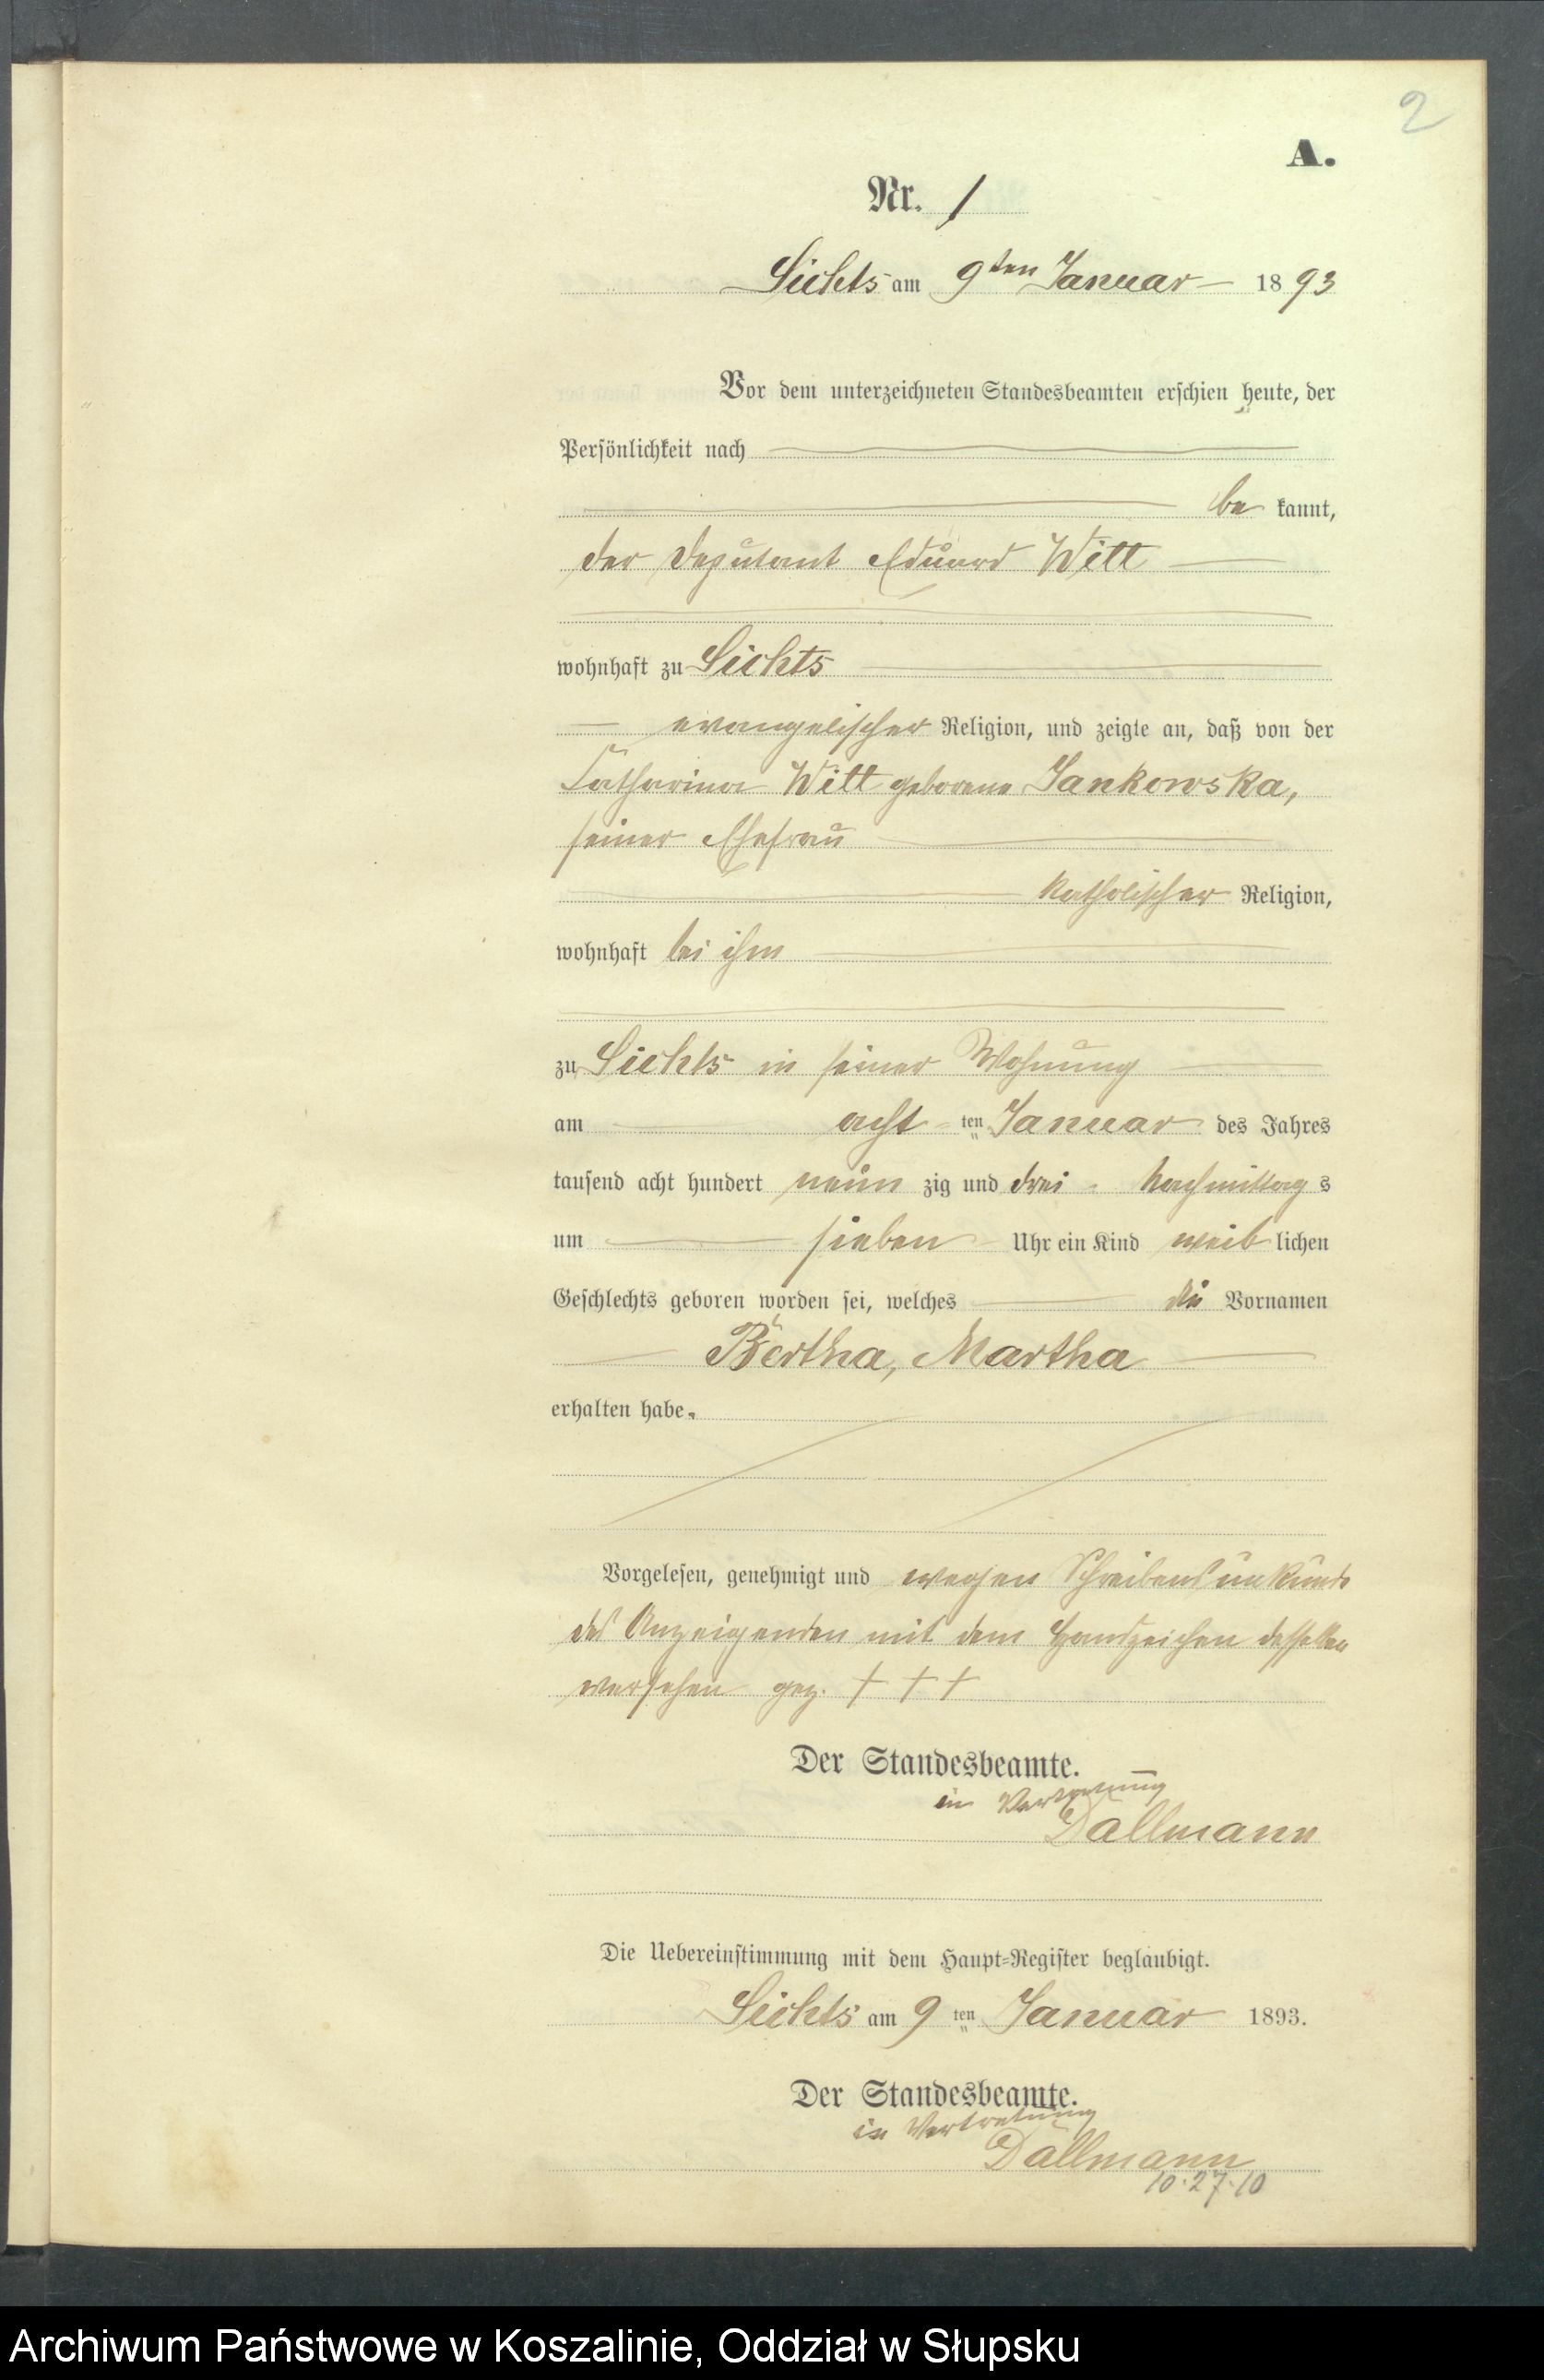 2
A.
Nr. 1
Sichts am 9ten Januar 1893
Vor dem unterzeichneten Standesbeamten erschien heute, der
Persönlichkeit nach
be kannt,
der Deputant Eduard Witt
wohnhaft zu Sichts
evangelischer Religion, und zeigte an, daß von der
Catharina Witt geborene Jankowska,
seiner Ehefrau
katholischer Religion,
wohnhaft bei ihm
zu Sichts in seiner Wohnung
am acht ten Januar des Jahres
tausend acht hundert neun zig und drei Nachmittag s
um sieben Uhr ein Kind weib lichen
Geschlechts geboren worden sei, welches die Vornamen
Bertha, Martha
erhalten habe.
Vorgelesen, genehmigt und wegen Schreibensunkunde
des Anzeigenden mit dem Handzeichen desselben
versehen gez. † † †
Der Standesbeamte.
in Vertretung
Dallmann
Die Uebereinstimmung mit dem Haupt-Register beglaubigt.
Sichts am 9 ten Januar 1893.
Der Standesbeamte.
in Vertretung
Dallmann
10.27.10
Archiwum Państwowe w Koszalinie, Oddział w Słupsku